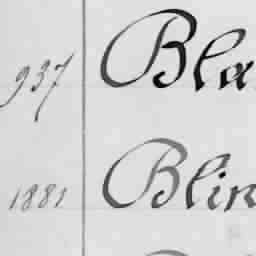 937 Bla
1881 Blin